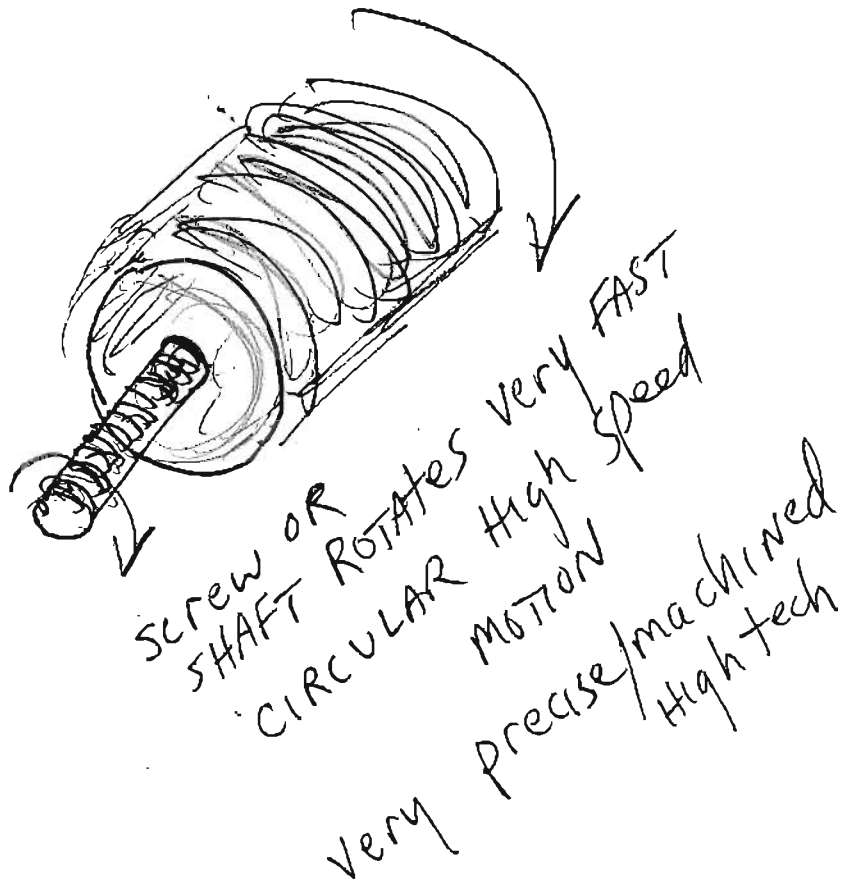 screw OR
SHAFT ROTATES very FAST
CIRCULAR HIgh speed
MOTION
very precise/machined
HIgh tech